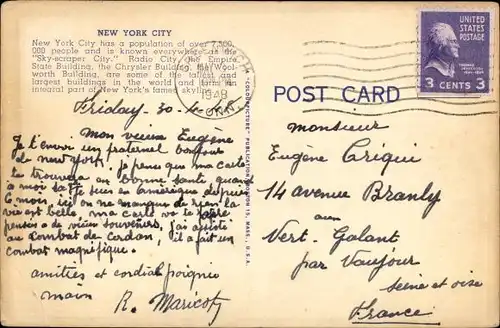 NEW YORK CITY
New York City has a population of over 7,500,
000 people and is known everywhere as the
"Sky-scraper City." Radio City the Empire
State Building, the Chrysler Building, the Wool-
worth Building, are some of the tallest and
largest buildings in the world and form an
integral part of New York's famed skyline.
Friday. 30. 48
Mon vieux Eugène
Je t'envoi un fraternel bonjour
de new york. je pense que ma carte
te trouvera en bonne santé quand
à moi sa va suis en Amérique depuis
mois, ici on ne manque de rien la
vie est belle, ma carte va te faire
pensée de vieux souvenirs, j'ai assisté
au combat de Cerdan, il a fait un
combat magnifique.
amitiés et cordial poignée
main
R. Maricot
"COLOURPICTURE" PUBLICATION, BOSTON 15, MASS., U.S.A.
1948
CONN.
UNITED STATES
POSTAGE
3 CENTS 3
POST CARD
monsieur
Eugène Criqui
14 avenue Branly
au
Vert-Galant
par Vaujour
seine et oise
France